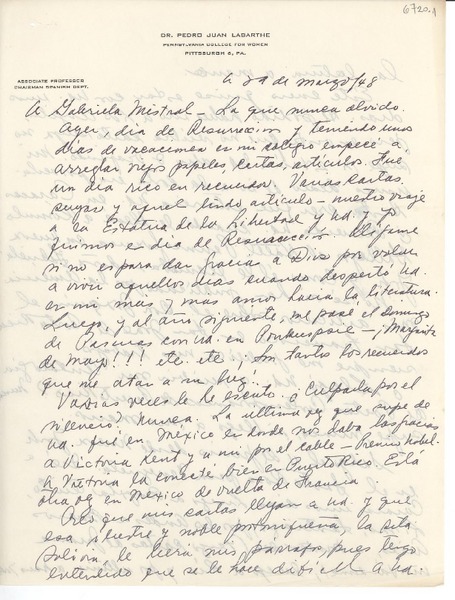 6720.1
DR. PEDRO JUAN LABARTHE
PENNSYLVANIA COLLEGE FOR WOMEN
PITTSBURGH 6, PA.
ASSOCIATE PROFESSOR
CHAIRMAN SPANISH DEPT.
A 29 de marzo/48
A Gabriela Mistral — La que nunca olvido.
Ayer, día de Resurrección y teniendo unos
días de vacaciones en mi colegio empecé a
arreglar viejos papeles, cartas, artículos. Fue
un día rico en recuerdos. Varias cartas
suyas y aquel lindo artículo — nuestro viaje
a la Estatua de la Libertad y Ud. y yo
fuimos el día de Resurrección. Dígame
si no es para dar gracias a Dios por volver
a vivir aquellos días cuando despertó Ud.
en mi mas y mas amor hacia la literatura.
Luego, y al año siguiente, me pasé el Domingo
de Pascuas con ud. en — ¡Margarita
de Mayo!!! etc. etc. ¡Son tantos los recuerdos
que me atan a su luz!
Varias veces le he escrito. ¿Culparla por el
silencio? Nunca. La última vez que supe de
Ud. fué en Mexico en donde nos daba las gracias
a Victoria Kent y a mi por el cable — Premio Nobel.
A Victoria la conocí bien en Puerto Rico. Está
otra vez en Mexico de vuelta de Francia
Creo que mis cartas llegan a Ud. y que
esa ilustre y noble portorriqueña, la Srta
le lleva mis párrafos, pues tengo
entendido que se le hace difícil a Ud.